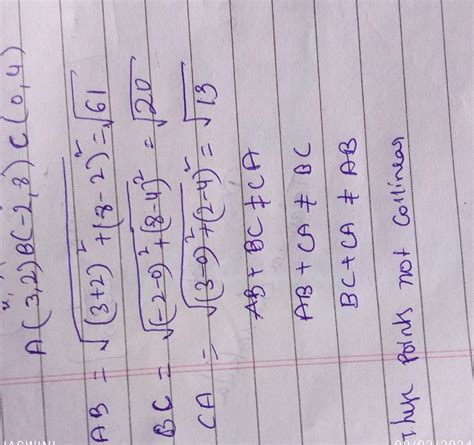 A(3,2) B(-2,8) C(0,4)
AB = √(3+2)² + (8-2)² = √61
BC = √(-2-0)² + (8-4)² = √20
CA = √(3-0)² + (2-4)² = √13
AB + BC ≠ CA
AB + CA ≠ BC
BC + CA ≠ AB
points not collinear